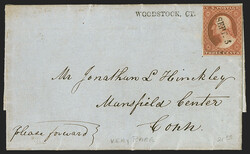 WOODSTOCK, CT.
Mr Jonathan L Hinckley
Mansfield Center
Conn
(please forward)